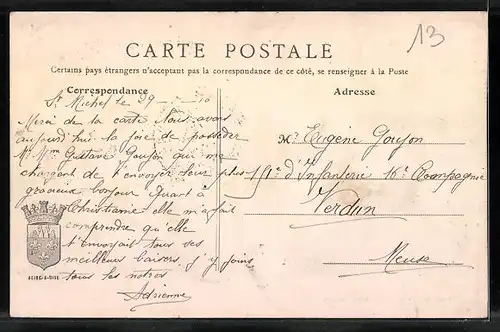 13
CARTE POSTALE
Certains pays étrangers n'acceptant pas la correspondance de ce côté, se renseigner à la Poste
Correspondance
Adresse
St Michel le 29
Merci de la carte Nous avons
aujourd hui la joie de posséder
Mr Mme Gustave Goujon qui me
chargent de t'envoyer leur plus
gracieux bonjour Quant à
Christiane elle m'a fait
comprendre qu'elle
t'Envoyait tous ses
meilleurs baisers j'y joins
tous les notres
Adrienne
Mr Eugène Goujon
d'Infanterie 16e Compagnie
Verdun
Meuse
SEINE-&-OISE